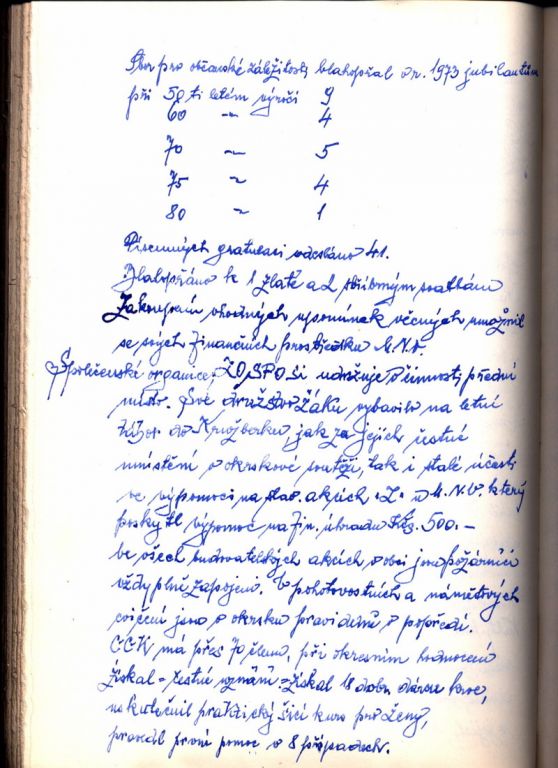 Sbor pro občanské záležitosti blahopřál v r. 1973 jubilantům
při 50 ti letém výročí 9
60 -"- 4
70 -"- 5
75 -"- 4
80 -"- 1
Písemných gratulací odesláno 41.
Blahopřáno k 1 zlaté a 2 stříbrným svatbám
Zakoupení vhodných upomínek věcných umožnil
se svých finančních prostředků M.N.V.
Společenské organice, ZO SPO si udržuje v činnosti přední
místo. Své družstvo žáků vybavilo na letní
tábor do Kružberku, jak za jejich čestné
umístění v okrskové soutěži, tak i stálé účasti
ve výpomoci na stav. akcích "Z" u M.N.V. který
poskytl výpomoc na fin. úhradu Kčs. 500.-
ve všech budovatelských akcích v obci jsou požárníci
vždy plně zapojeni. V pohotovostních a námětových
cvičení jsou v okrsku pravidelně v popředí.
ČČK má přes 70 členů, při okresním hodnocení
získal - čestné uznání - získal 18 dobr. dárců krve,
uskutečnil praktický šicí kurs pro ženy,
provedl první pomoc v 8 případech.